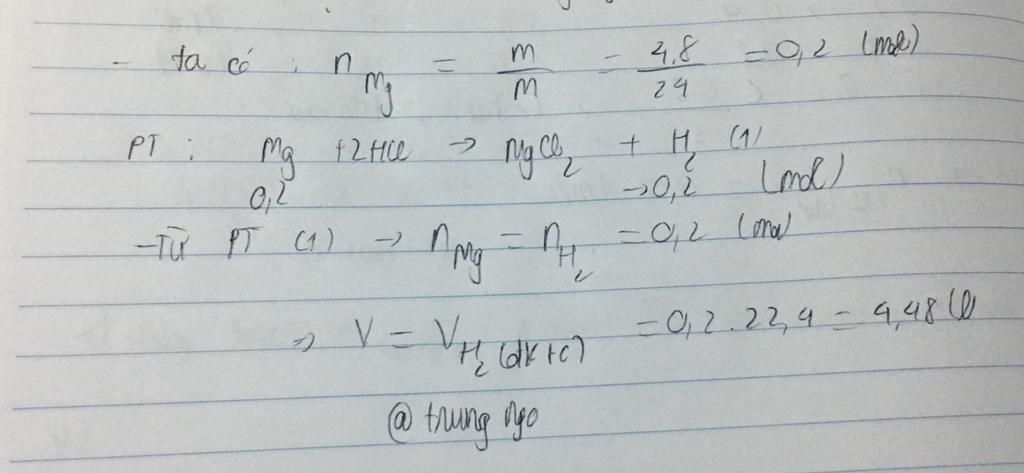 - ta có : n Mg = m/m = 4,8/24 = 0,2 (mol)
PT : Mg + 2HCl → MgCl₂ + H₂ (1)
0,2 → 0,2 (mol)
- Từ PT (1) → n Mg = n H₂ = 0,2 (mol)
⇒ V = V H₂ (đktc) = 0,2 . 22,4 = 4,48 (l)
@ trung ngo